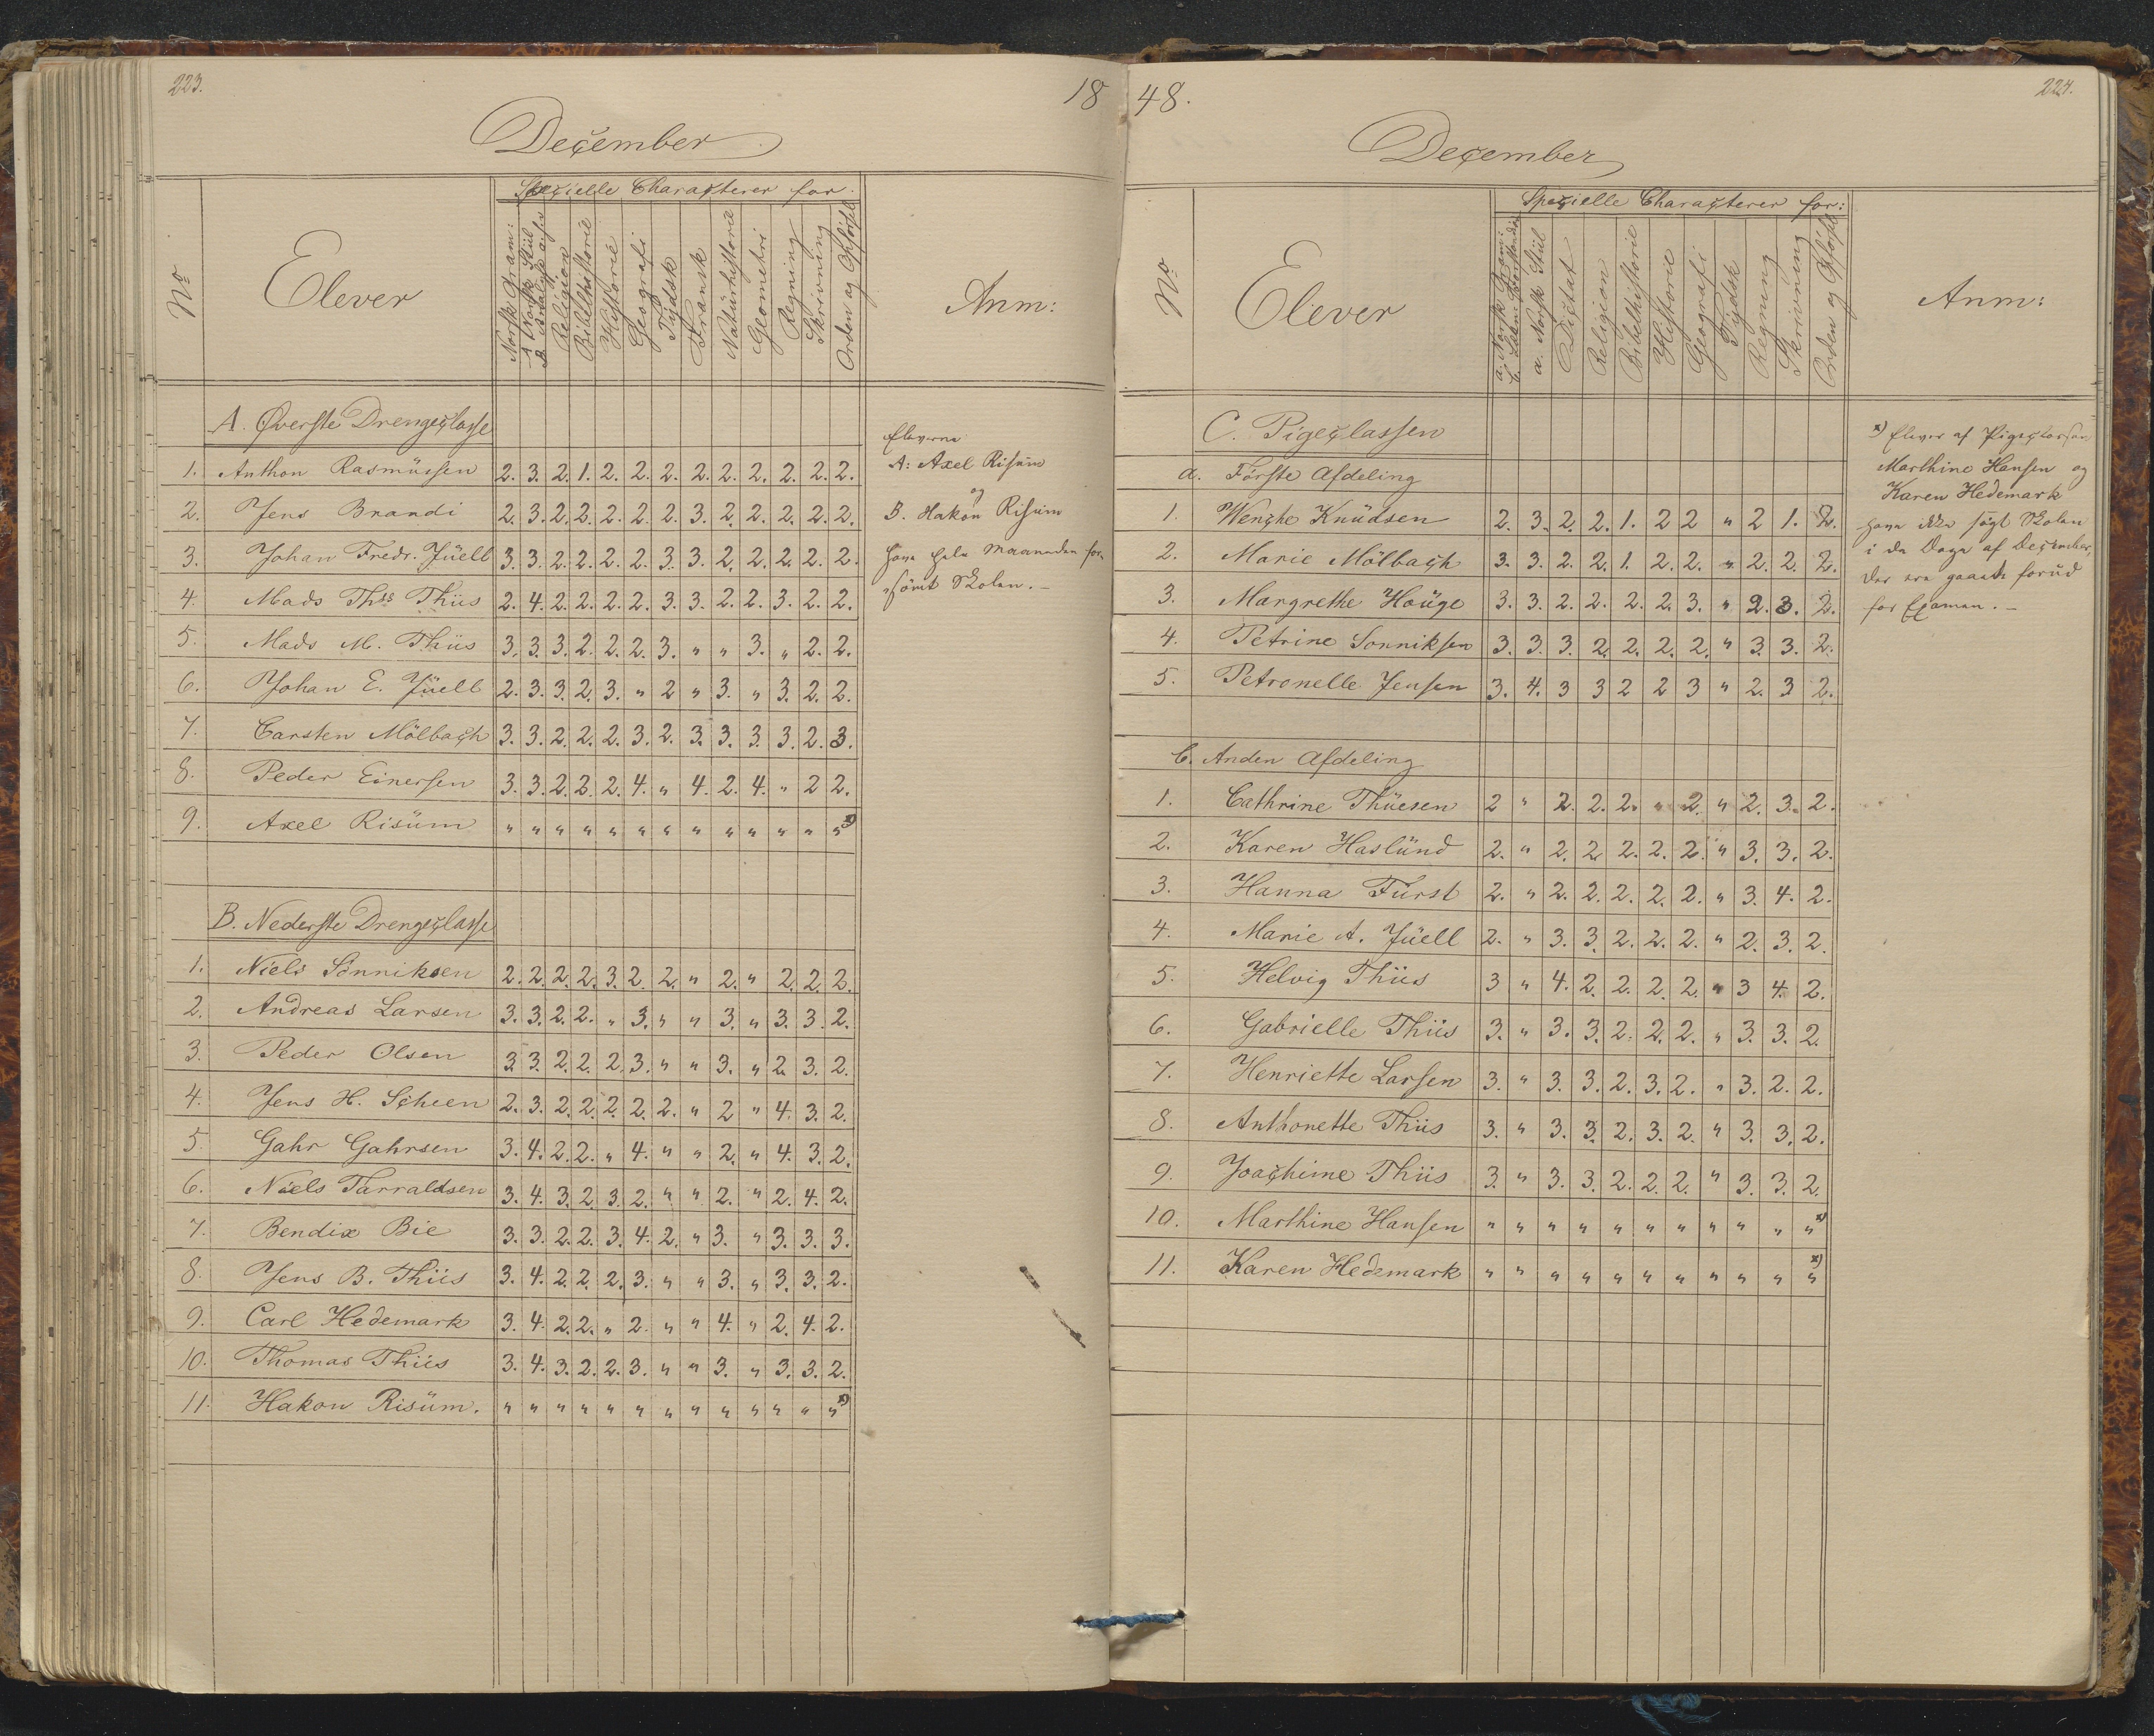 223.
18
December
Specielle Characterer for.
No
Elever
Norsk Gram:
A Norsk Stiil
B Analyse
Religion
Bibelhistorie
Historie
Geografi
Tydsk
Fransk
Naturhistorie
Geometri
Regning
Skrivning
Orden og Opførsel
Anm:
A. Øverste Drengeclasse
1. Anthon Rasmüssen 2. 3. 2. 1. 2. 2. 2. 2. 2. 2. 2. 2. 2.
2. Jens Brandi 2. 3. 2. 2. 2. 2. 2. 3. 2. 2. 2. 2. 2.
3. Johan Fredr. Jüell 3. 3. 2. 2. 2. 2. 3. 3. 2. 2. 2. 2. 2.
4. Mads Ths Thiis 2. 4. 2. 2. 2. 2. 3. 3. 2. 2. 3. 2. 2.
5. Mads M. Thiis 3. 3. 3. 2. 2. 2. 3. " " 3. " 2. 2.
6. Johan E. Jüell 2. 3. 3. 2. 3. " 2 " 3. " 3. 2. 2.
7. Carsten Mölbach 3. 3. 2. 2. 2. 3. 2. 3. 3. 3. 3. 2. 3.
8. Peder Einersen 3. 3. 2. 2. 2. 4. " 4. 2. 4. " 2 2.
9. Axel Risüm " " " " " " " " " " " " " x)
Eleverne
A: Axel Risüm
og
B. Hakon Risüm
have hele Maaneden for-
sömt Skolen. —
B. Nederste Drengeclasse
1. Niels Sönniksen 2. 2. 2. 2. 3. 2. 2. " 2. " 2. 2. 2.
2. Andreas Larsen 3. 3. 2. 2. " 3. " " 3. " 3. 3. 2.
3. Peder Olsen 3. 3. 2. 2. 2. 3. " " 3. " 2. 3. 2.
4. Jens H. Scheen 2. 3. 2. 2. 2. 2. 2. " 2 " 4. 3. 2.
5. Gahr Gahrsen 3. 4. 2. 2. " 4. " " 2. " 4. 3. 2.
6. Niels Tarraldsen 3. 4. 3. 2. 3. 2. " " 2. " 2. 4. 2.
7. Bendix Bie 3. 3. 2. 2. 3. 4. 2. " 3. " 3. 3. 3.
8. Jens B. Thiis 3. 4. 2. 2. 2. 3. " " 3. " 3. 3. 2.
9. Carl Hedemark 3. 4. 2. 2. " 2. " " 4. " 2. 4. 2.
10. Thomas Thiis 3. 4. 3. 2. 2. 3. " " 3. " 3. 3. 2.
11. Hakon Risüm. " " " " " " " " " " " " " x)
48.
224.
December
Specielle Characterer for:
No
Elever
a. Norsk Gram:
b. Læse Forstandig
a. Norsk Stiil
Dictat
Religion
Bibelhistorie
Historie
Geografi
Tydsk
Regning
Skrivning
Orden og Opførsel
Anm:
C. Pigeclassen
a. Första Afdeling
1. Wenche Knüdsen 2. 3. 2. 2. 1. 2 2 " 2 1. 2.
2. Marie Mölbach 3. 3. 2. 2. 1 2. 2. " 2. 2. 2.
3. Margrethe Hoüge 3. 3. 2. 2. 2. 2. 3. " 2. 3. 2.
4. Petrine Sonniksen 3. 3. 3. 2. 2. 2. 2. " 3. 3. 2.
5. Petronelle Jensen 3. 4. 3 3 2 2 3 " 2. 3 2.
x) Elever af Pigeclassen
Marthine Hansen og
Karen Hedemark
have ikke sögt Skolen
i de Dage af December,
der ere gaaede forüd
for Examen. —
b. Anden Afdeling
1. Cathrine Thüesen 2 " 2. 2. 2. " 2. " 2. 3. 2.
2. Karen Haslünd 2. " 2. 2. 2. 2. 2. " 3. 3. 2.
3. Hanna Fürst 2. " 2. 2. 2. 2. 2. " 3. 4. 2.
4. Marie A. Jüell 2. " 3. 3. 2. 2. 2. " 2. 3. 2.
5. Helvig Thiis 3 " 4. 2. 2. 2. 2. " 3 4. 2.
6. Gabrielle Thiis 3. " 3. 3. 2. 2. 2. " 3. 3. 2.
7. Henriette Larsen 3. " 3. 3. 2. 3. 2. " 3. 2. 2.
8. Anthonette Thiis 3. " 3. 3. 2. 3. 2. " 3. 3. 2.
9. Joachime Thiis 3. " 3. 3. 2. 2. 2. " 3. 3. 2.
10. Marthine Hansen " " " " " " " " " " " x)
11. Karen Hedemark " " " " " " " " " " " x)